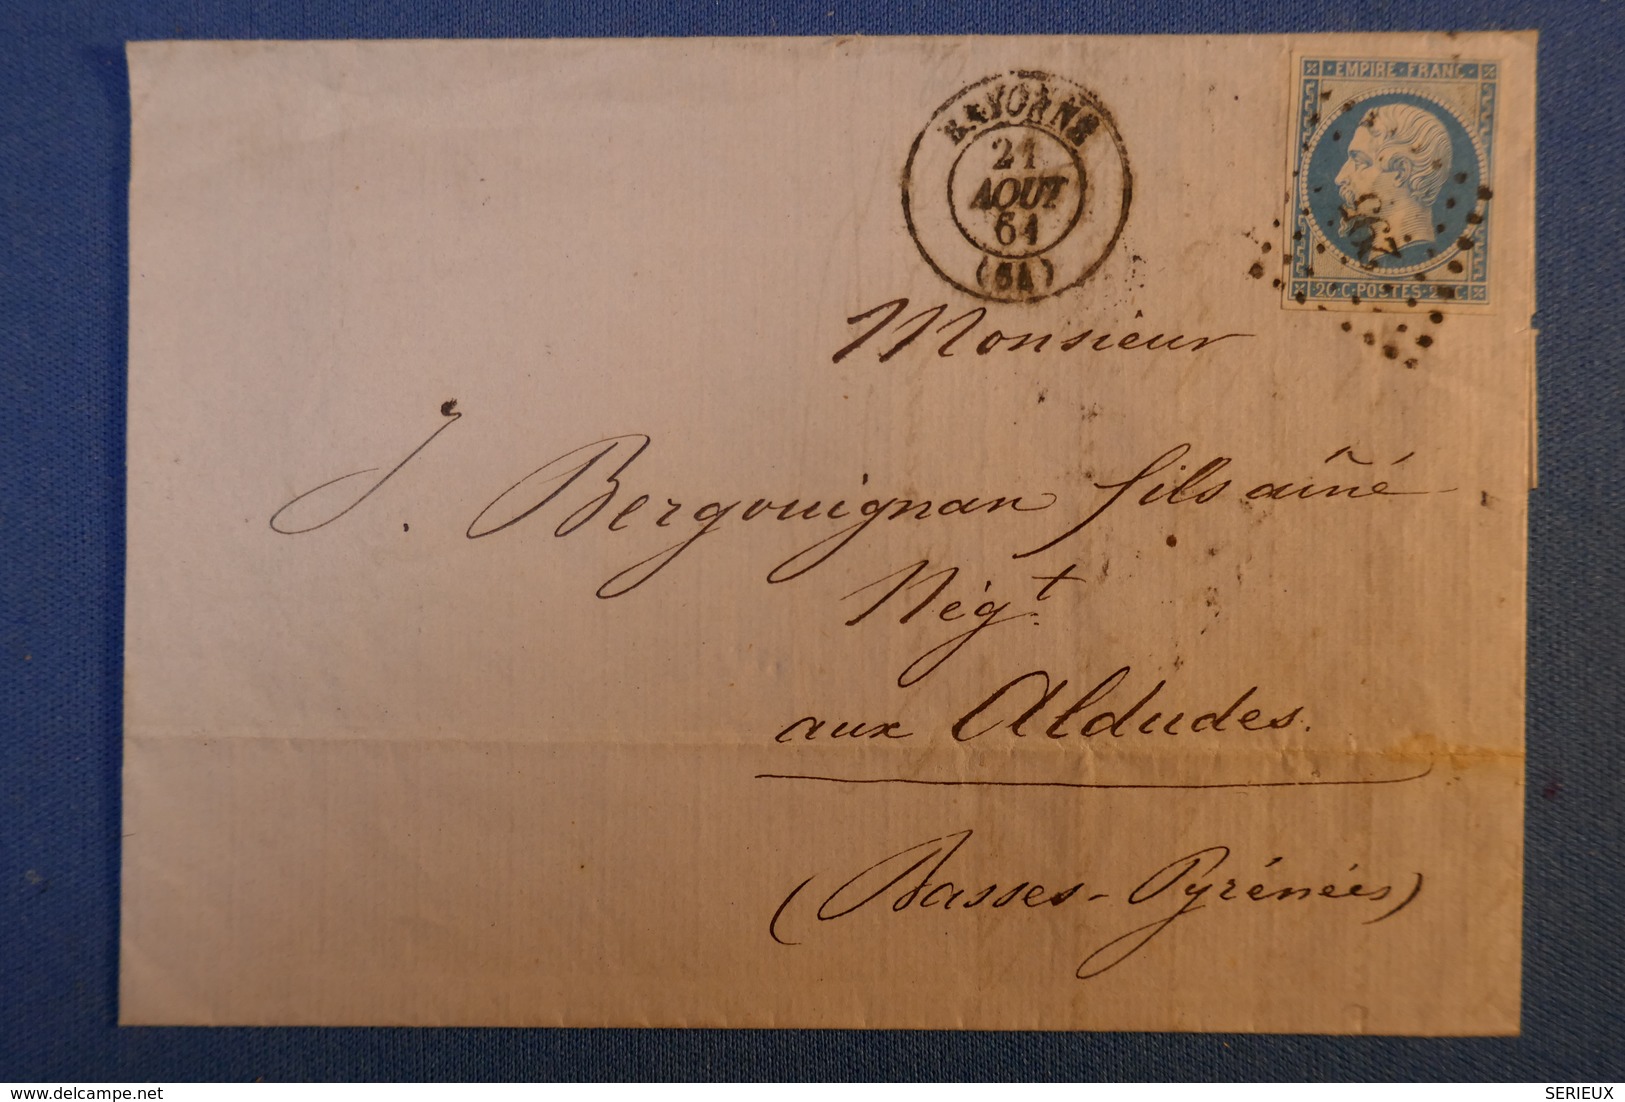 BAYONNE
21
AOUT
61
(64)
EMPIRE·FRANC·
265
20·C·POSTES·20·C·
Monsieur
J. Bergouignan fils aîné
Négt.
aux Aldudes.
(Basses-Pyrénées)
http://www.delcampe.net
SERIEUX